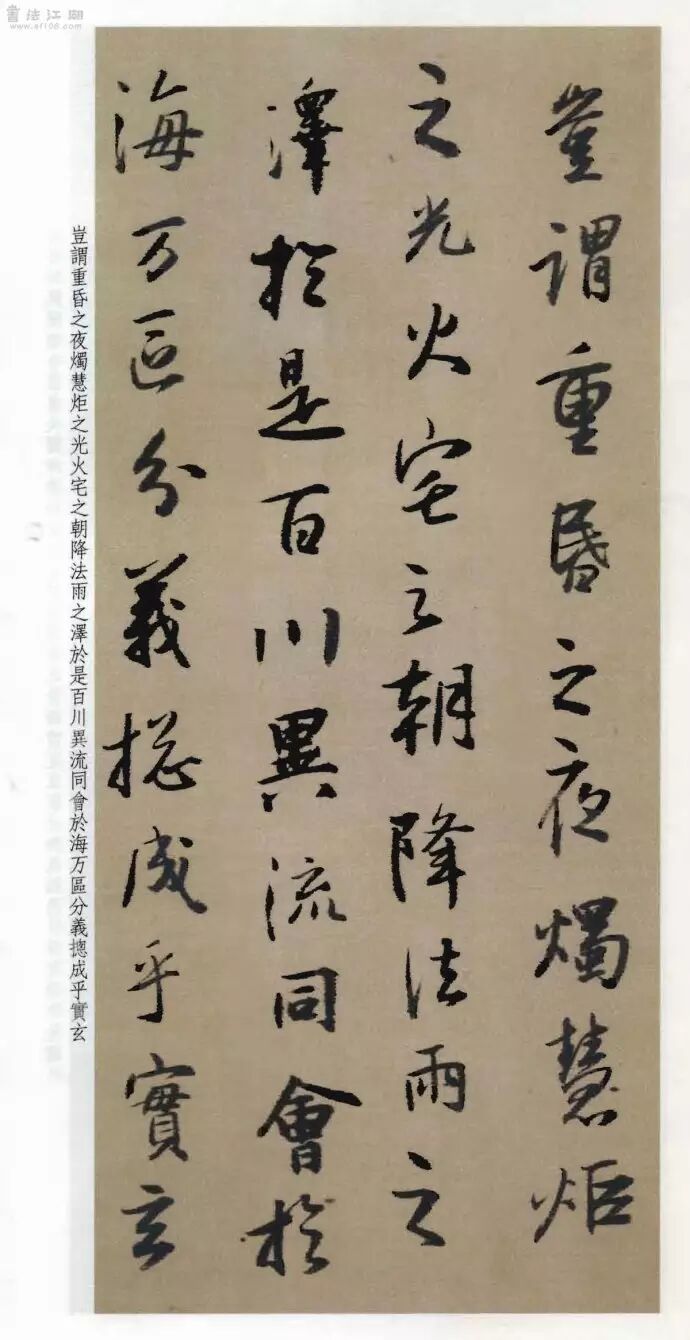 書法江湖
www.sf108.com
豈謂重昏之夜燭慧炬
之光火宅之朝降法雨之
澤於是百川異流同會於
海万區分義揔成乎實玄
豈謂重昏之夜燭慧炬之光火宅之朝降法雨之澤於是百川異流同會於海万區分義摠成乎實玄